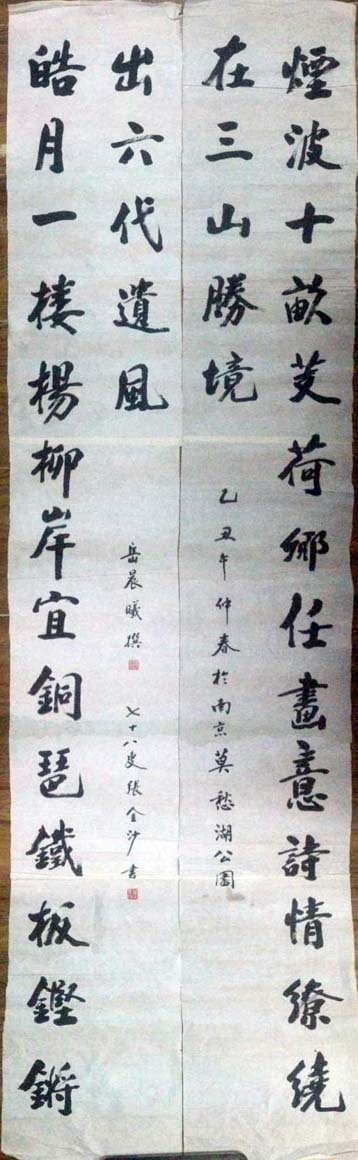 煙波十畝芰荷鄉任畫意詩情繚繞
在三山勝境
乙丑年仲春於南京莫愁湖公園
皓月一楼楊柳岸宜銅琶鐵板鏗鏘
出六代遺風
岳晨曦撰
七十八叟張金沙書